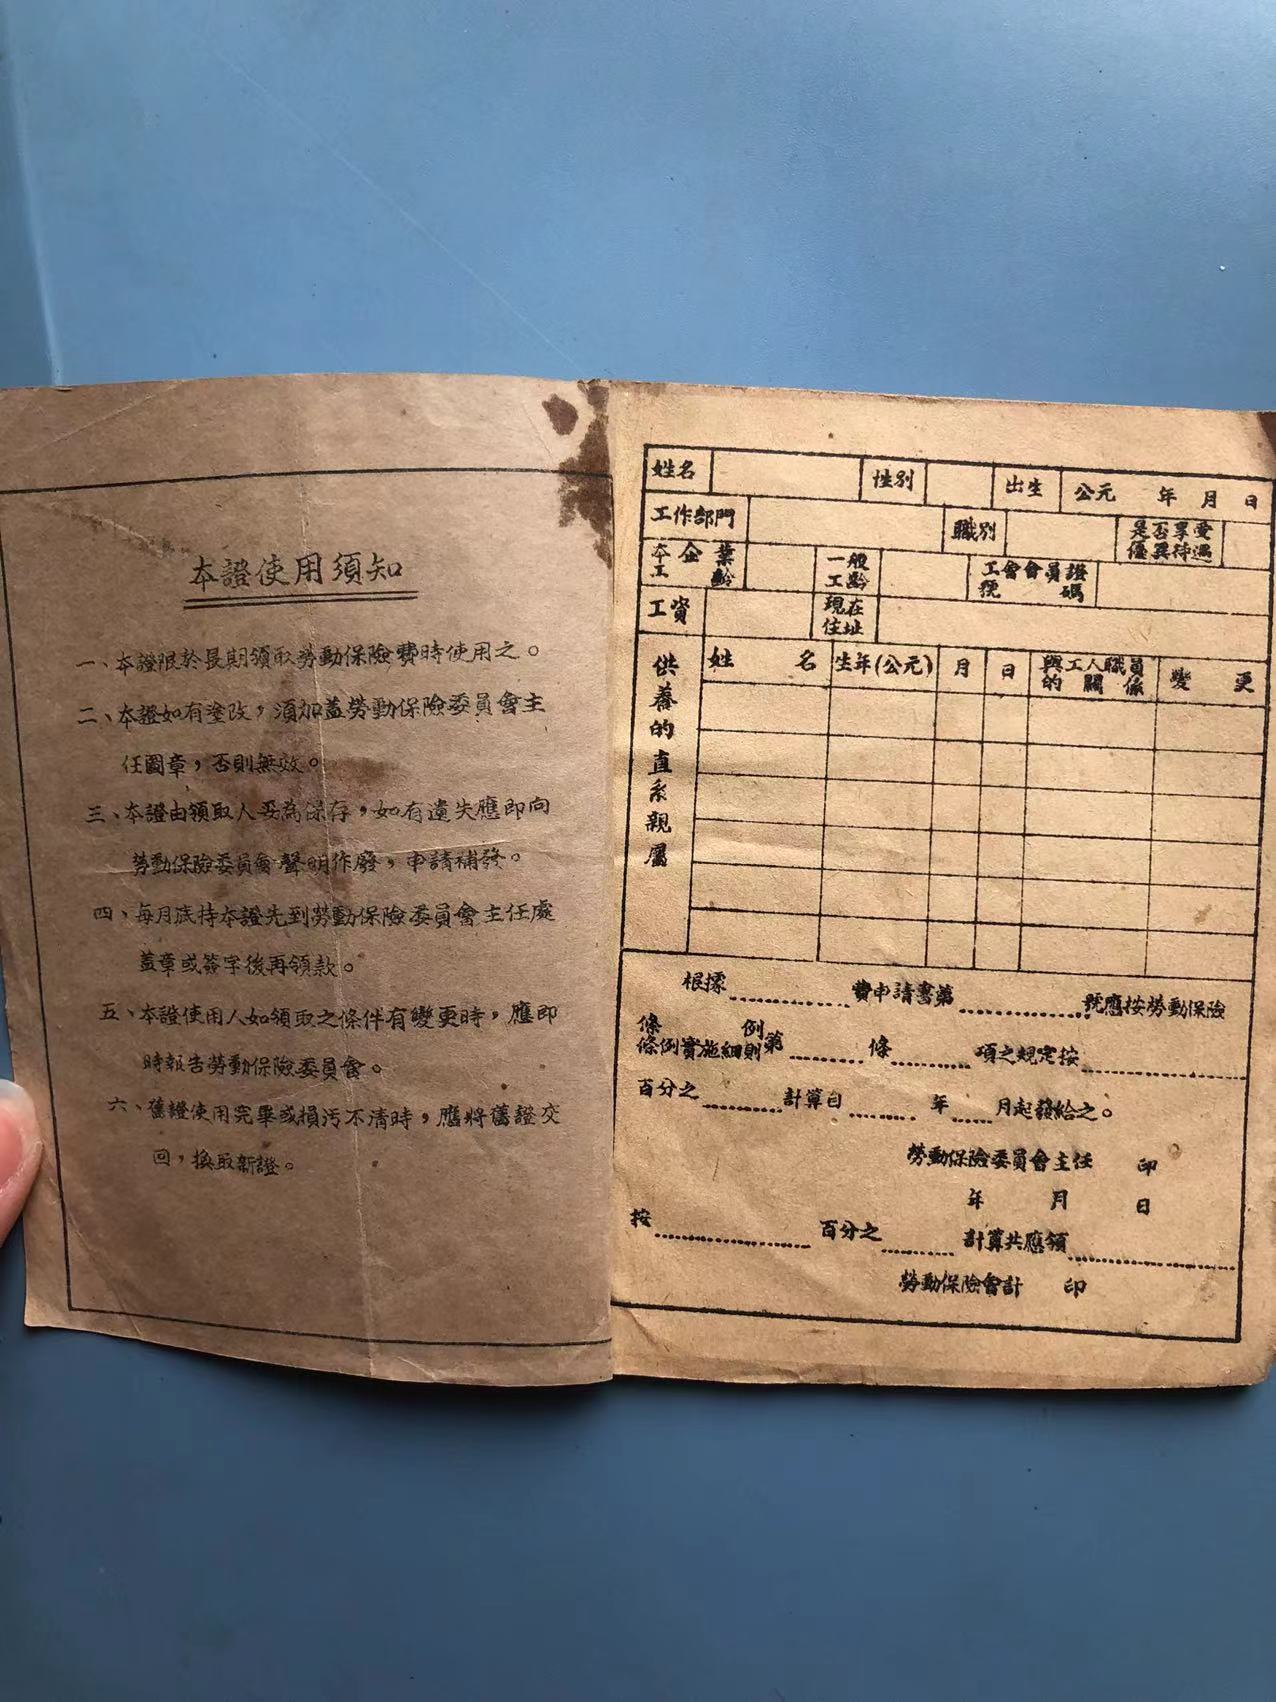 本證使用須知
一、本證限於長期領取勞動保險費時使用之。
二、本證如有塗改，須加蓋勞動保險委員會主
任圖章，否則無效。
三、本證由領取人妥為保存，如有遺失應即向
勞動保險委員會聲明作廢，申請補發。
四、每月底持本證先到勞動保險委員會主任處
蓋章或簽字後再領款。
五、本證使用人如領取之條件有變更時，應即
時報告勞動保險委員會。
六、舊證使用完畢或損污不清時，應將舊證交
回，換取新證。
姓名 性別 出生 公元 年 月 日
工作部門 職別 是否享受優異待遇
本企業工齡 一般工齡 工會會員證號碼
工資 現在住址
供養的直系親屬
姓 名 生年(公元) 月 日 與工人職員的關係 變 更
根據 費申請書第 號應按勞動保險
條 例
條例實施細則 第 條 項之規定按
百分之 計算自 年 月起發給之。
勞動保險委員會主任 印
年 月 日
按 百分之 計算共應領
勞動保險會計 印